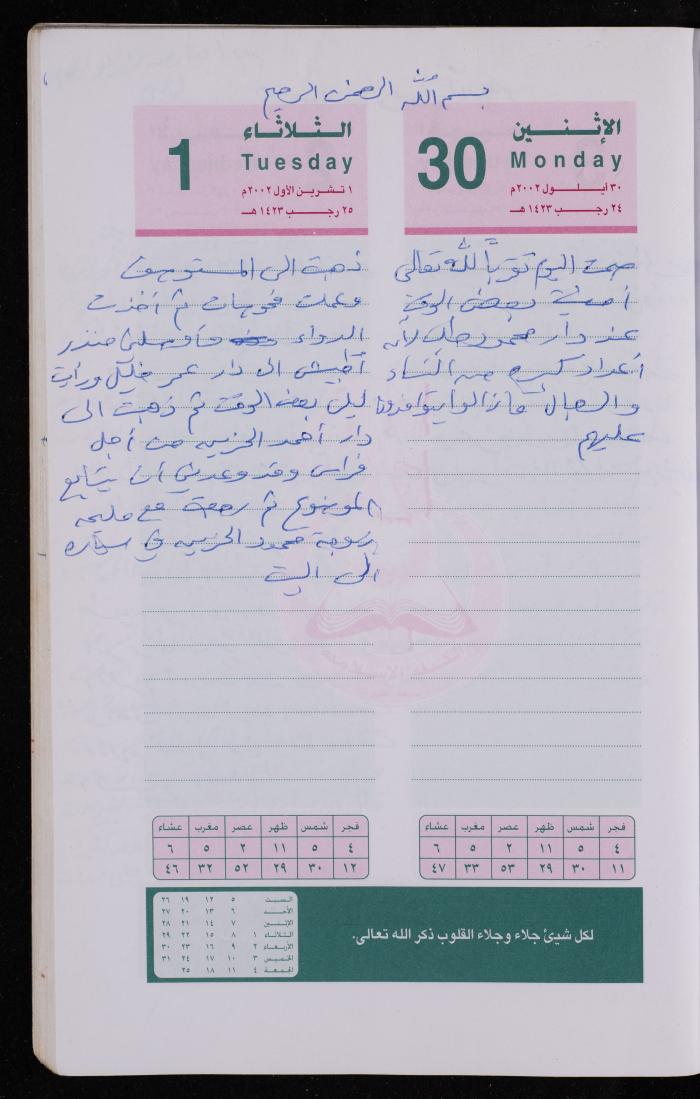 بسم الله الرحمن الرحيم
الإثنين
30 Monday
٣٠ أيلول ٢٠٠٢م
٢٤ رجب ١٤٢٣ هـ
صمت اليوم تقرباً لله تعالى
أمضيت بعض الوقت
عند دار محمود لأنه
أعداد كبيرة من النساء
والرجال ما زالوا يتوافدوا
عليهم
الثلاثاء
1 Tuesday
١ تشرين الأول ٢٠٠٢م
٢٥ رجب ١٤٢٣ هـ
ذهبت الى المستوصف
وعملت فحوصات ثم أخذت
الدواء منذر
الى دار عمر خليل ورأيت
ليلى بعض الوقت ثم ذهبت الى
دار أحمد الحزين من أجل
فراس وقد وعدني أن يتابع
الموضوع ثم رجعت مع مليحه
زوجة محمود الحزين في سياره
الى البيت
الكتلة الإسلامية
فجر شمس ظهر عصر مغرب عشاء
٤ ٥ ١١ ٢ ٥ ٦
١١ ٣٠ ٢٩ ٥٣ ٣٣ ٤٧
فجر شمس ظهر عصر مغرب عشاء
٤ ٥ ١١ ٢ ٥ ٦
١٢ ٣٠ ٢٩ ٥٢ ٣٢ ٤٦
لكل شيئ جلاء وجلاء القلوب ذكر الله تعالى.
السبت ٥ ١٢ ١٩ ٢٦
الأحد ٦ ١٣ ٢٠ ٢٧
الإثنين ٧ ١٤ ٢١ ٢٨
الثلاثاء ١ ٨ ١٥ ٢٢ ٢٩
الأربعاء ٢ ٩ ١٦ ٢٣ ٣٠
الخميس ٣ ١٠ ١٧ ٢٤ ٣١
الجمعة ٤ ١١ ١٨ ٢٥